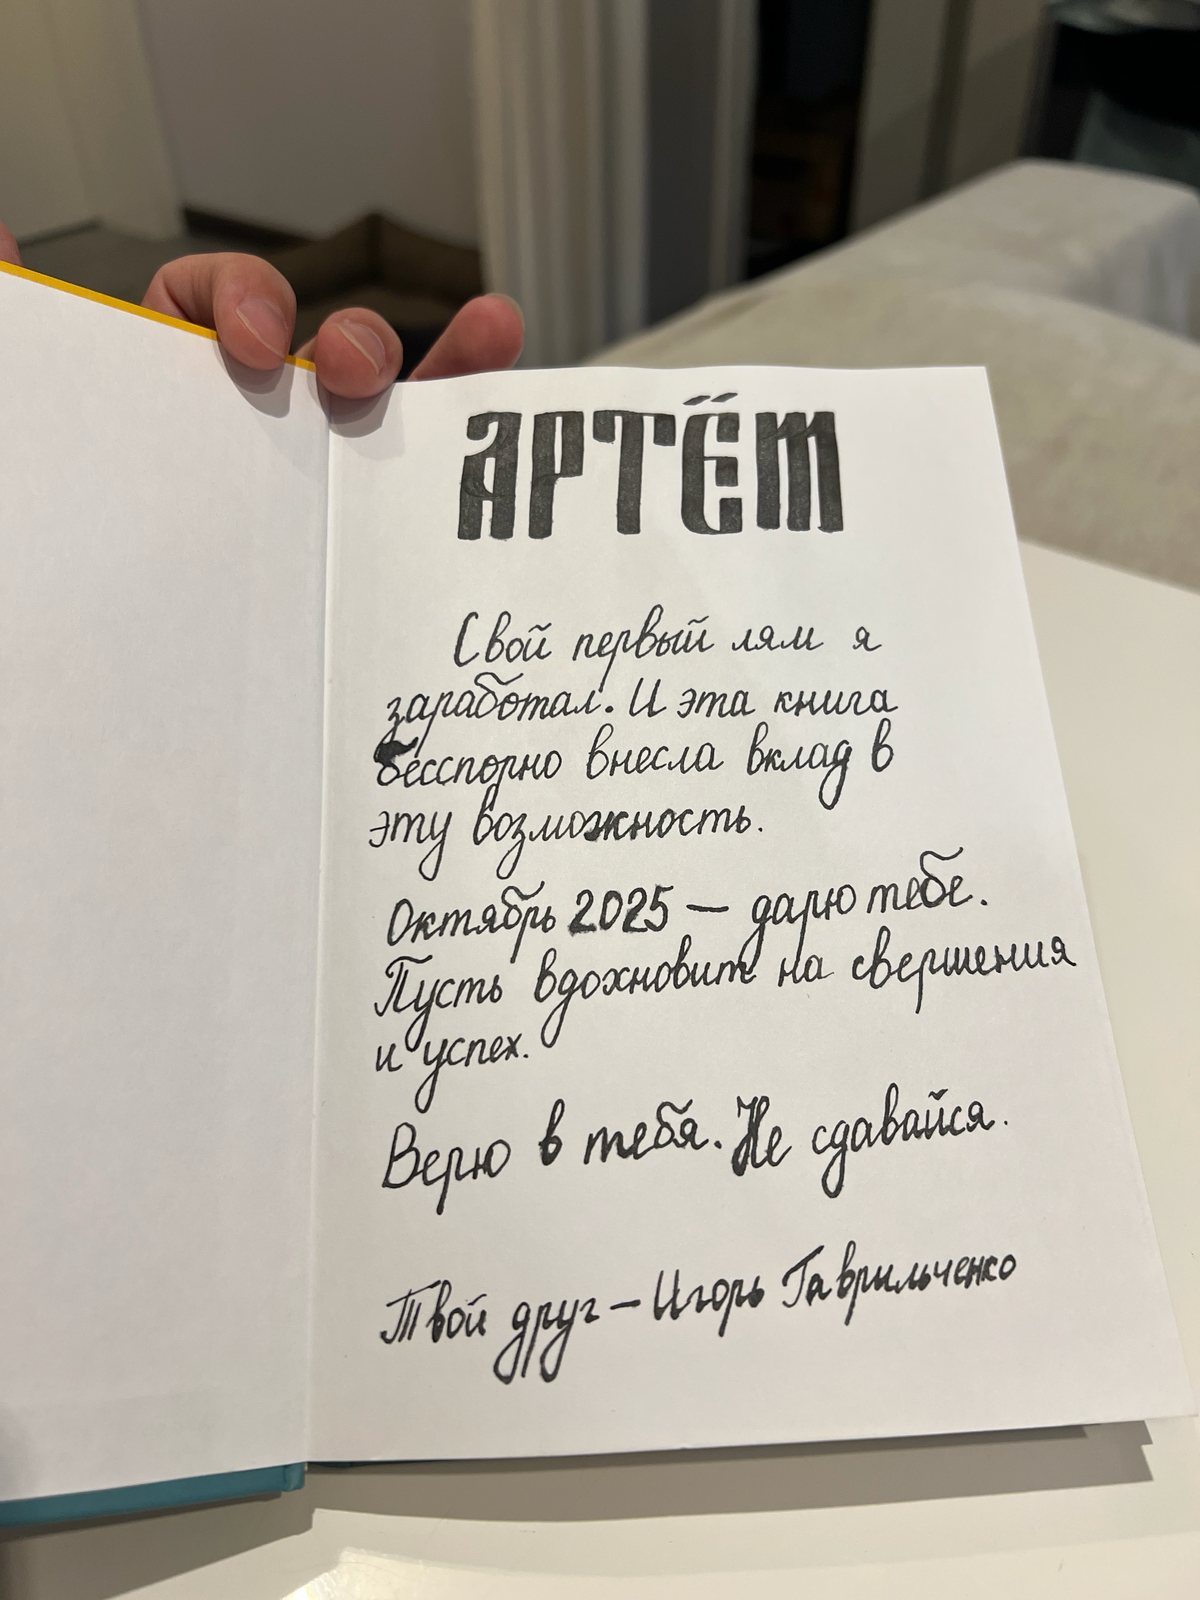 АРТЁМ
Свой первый лям я
заработал. И эта книга
бесспорно внесла вклад в
эту возможность.
Октябрь 2025 — дарю тебе.
Пусть вдохновит на свершения
и успех.
Верю в тебя. Не сдавайся.
Твой друг — Игорь Гаврильченко